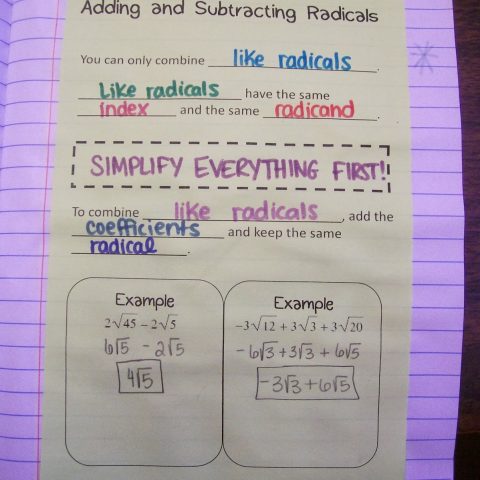 Adding and Subtracting Radicals
You can only combine like radicals.
Like radicals have the same
index and the same radicand.
SIMPLIFY EVERYTHING FIRST!
To combine like radicals, add the
coefficients and keep the same
radical.
Example
2√45 − 2√5
6√5 - 2√5
4√5
Example
−3√12 + 3√3 + 3√20
-6√3 + 3√3 + 6√5
-3√3 + 6√5